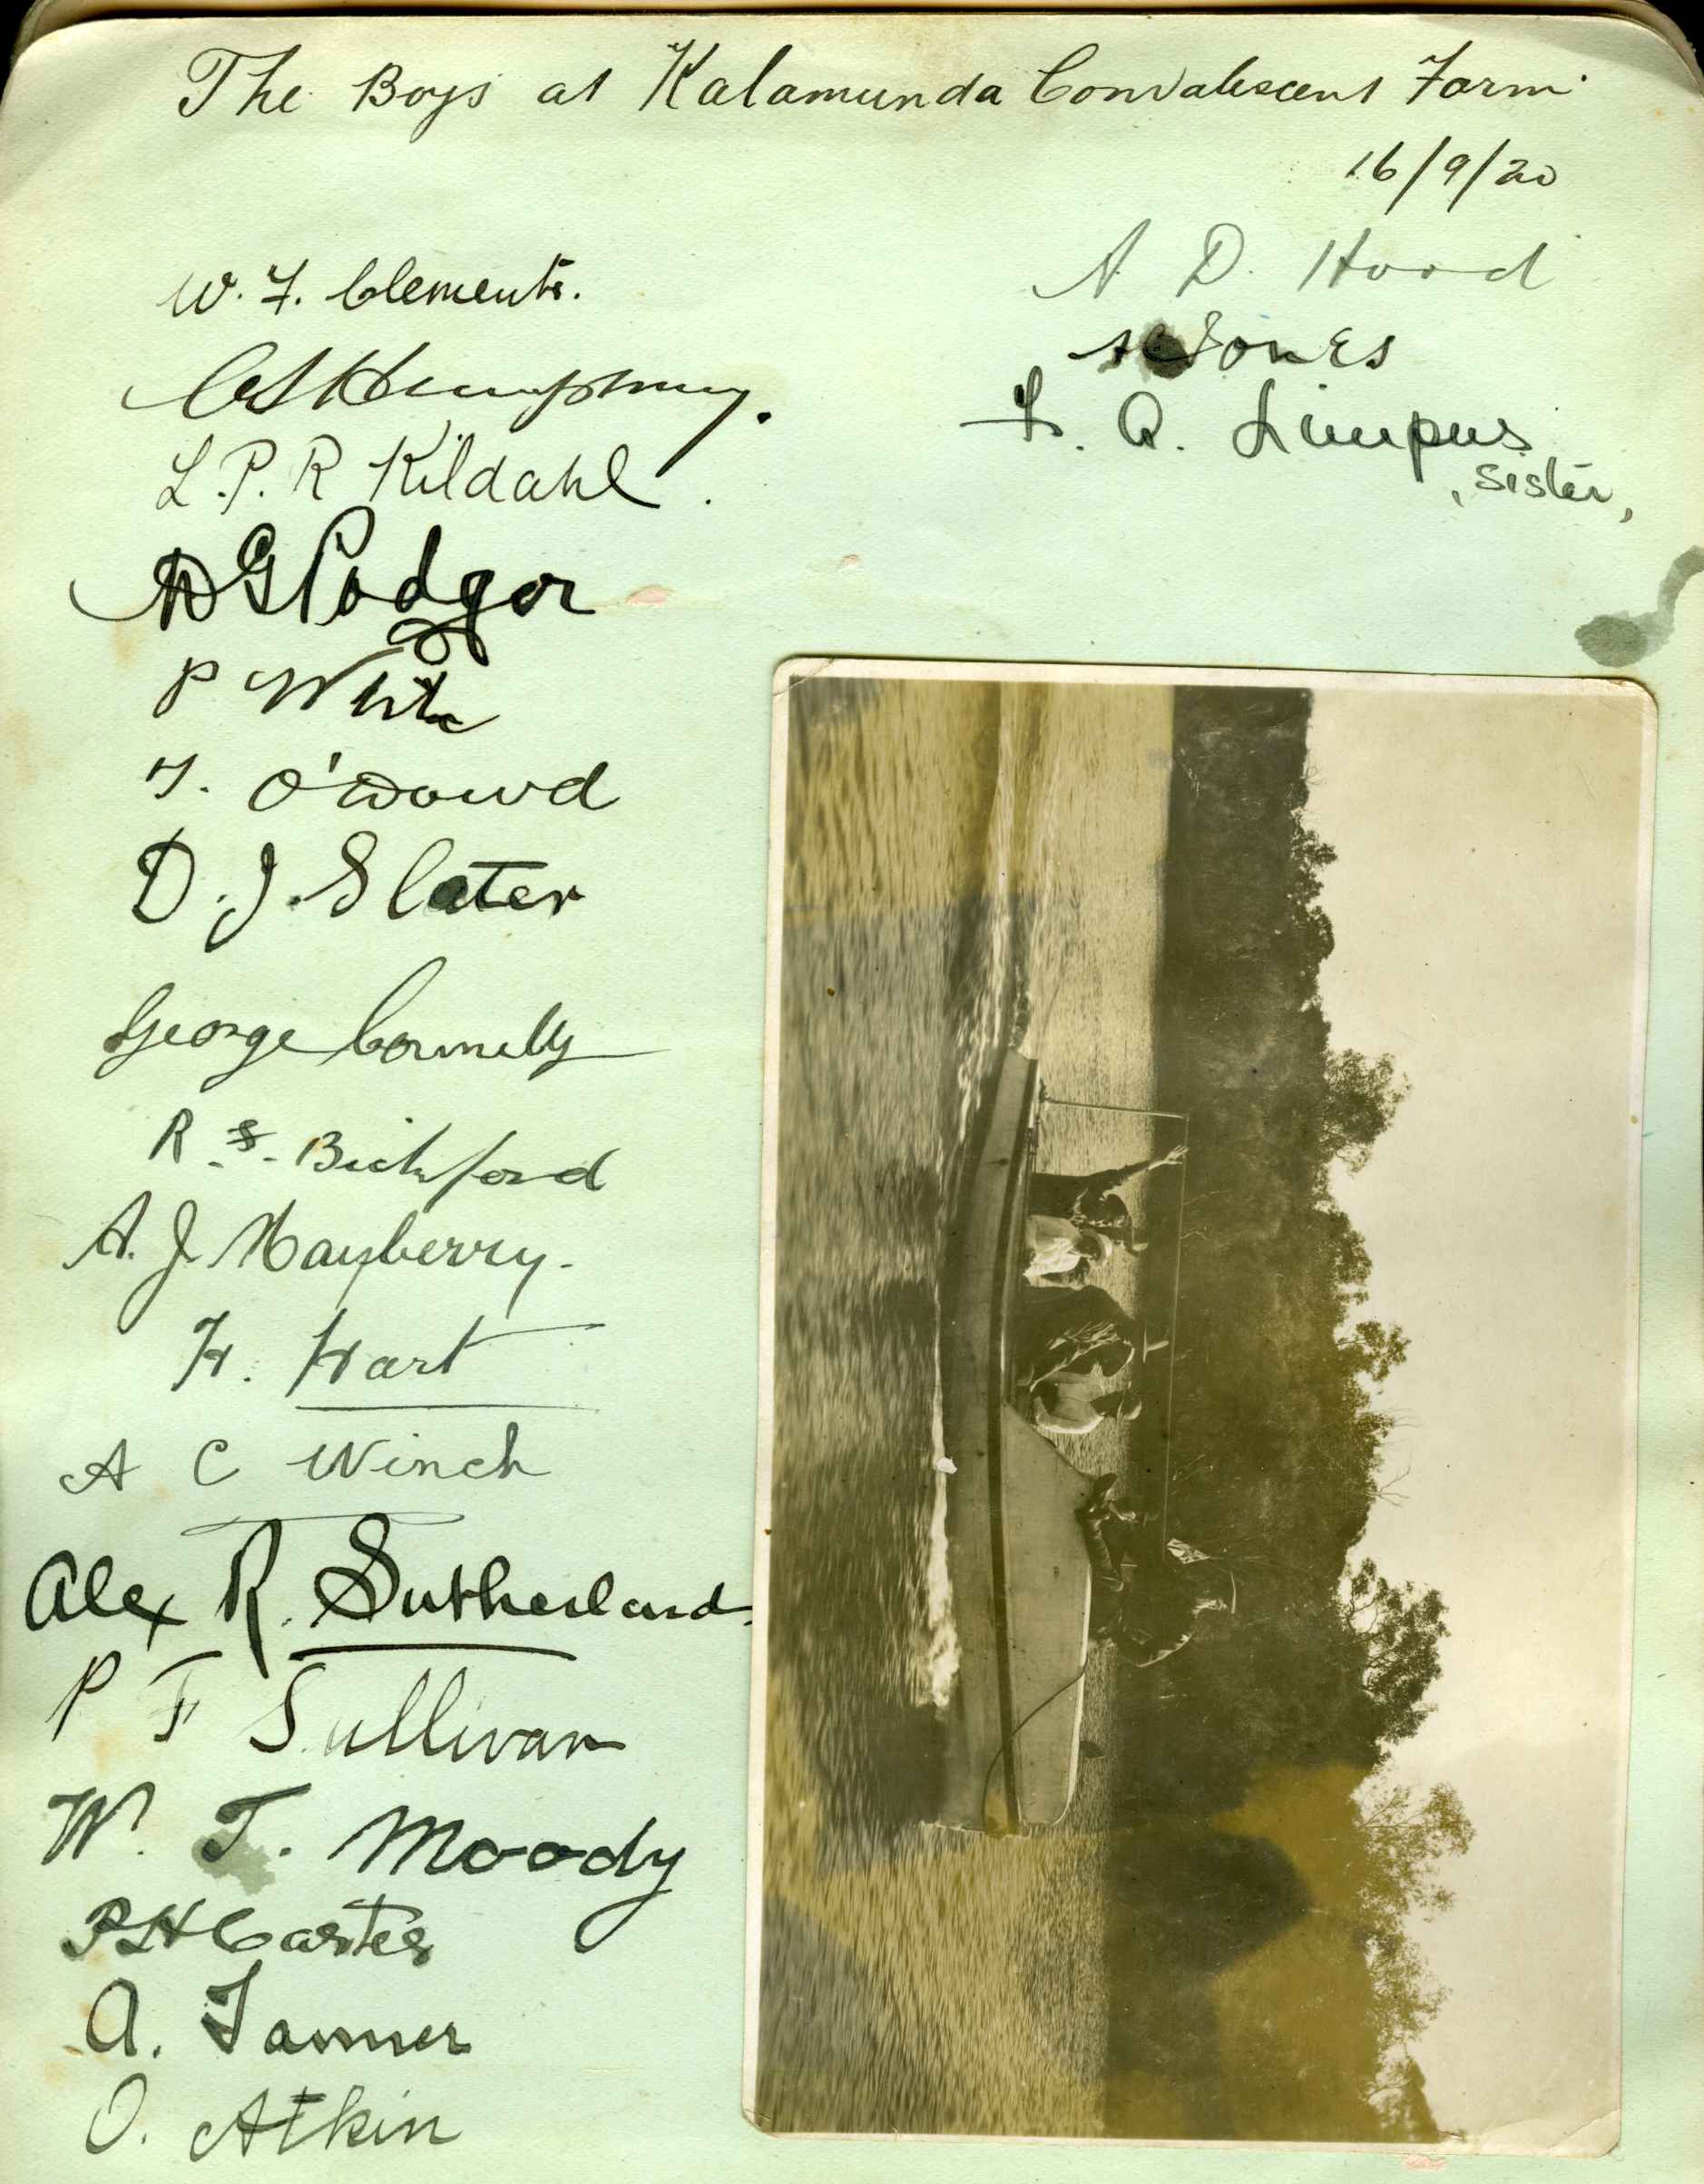 The Boys at Kalamunda Convalescent Farm
16/9/20
W. F. Clements.
Humphrey.
L. P. R Kildahl.
D G Podger
P White
T. O'Dowd
D. J. Slater
George Connelly
R. S. Bickford
A. J. Mayberry.
H. Hart
A C Winch
Alex R. Sutherland.
P F Sullivan
W. T. Moody
P H Carter
A. Tanner
O. Atkin
A. D. Hood
Jones
A. Limpus
Sister,